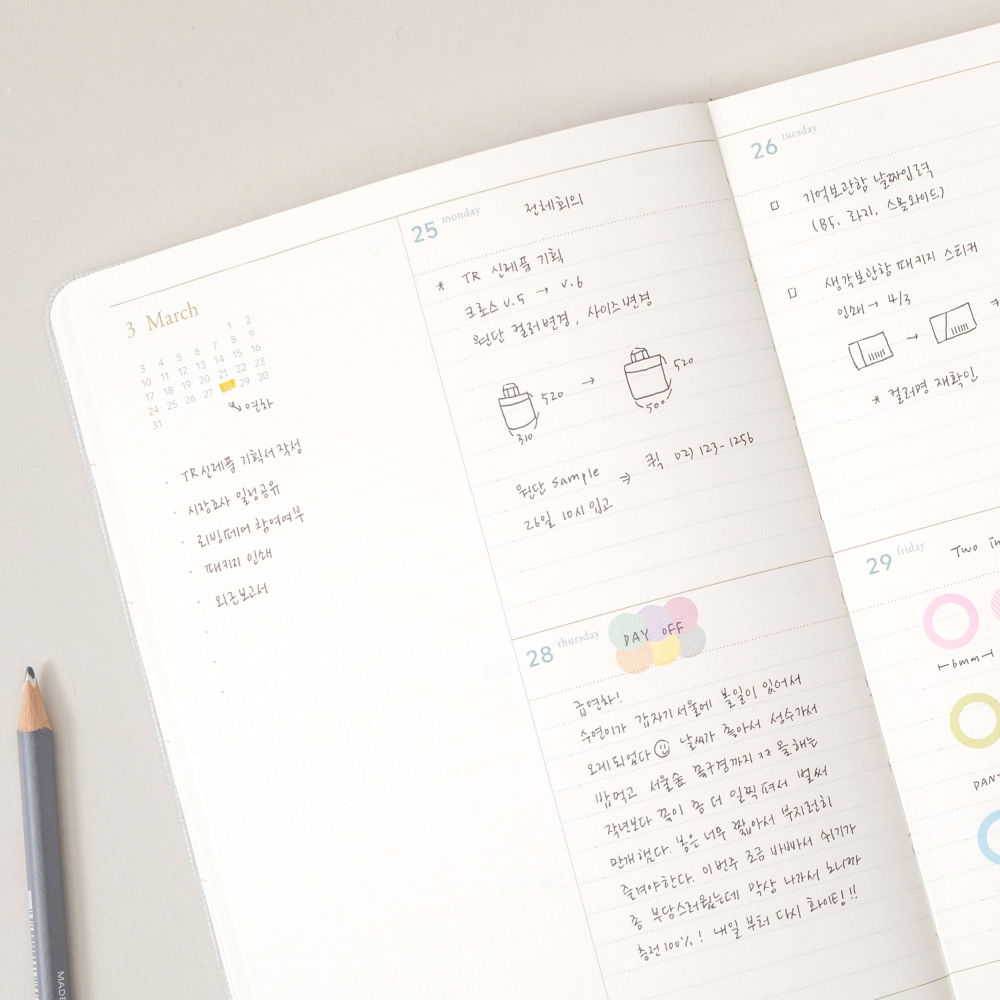 3 March
1 2
3 4 5 6 7 8 9
10 11 12 13 14 15 16
17 18 19 20 21 22 23
24 25 26 27 29 30
31
연차
· TR 신제품 기획서 작성
· 시장조사 일정공유
· 리빙페어 참여여부
· 패키지 인쇄
· 외근보고서
25 monday 전체회의
* TR 신제품 기획
크로스 v.5 → v.6
원단 컬러변경, 사이즈변경
520 → 520
310 500
원단 sample ⇒ 퀵 02) 123-1256
26일 10시 입고
28 thursday DAY OFF
급연차!
수연이가 갑자기 서울에 볼일이 있어서
오게되었다 날씨가 좋아서 성수가서
밥먹고 서울숲 꽃구경까지 ㅋㅋ 올해는
작년보다 꽃이 좀 더 일찍 펴서 벌써
만개했다. 봄은 너무 짧아서 부지런히
즐겨야한다. 이번주 조금 바빠서 쉬기가
좀 부담스러웠는데 막상 나가서 노니까
충전 100% ! 내일 부터 다시 화이팅!!
26 tuesday
□ 기억보관함 날짜입력
(B5, 라지, 스몰와이드)
□ 생각보관함 패키지 스티커
인쇄 → 4/3
→ →
* 컬러명 재확인
29 friday Two in
6mm
PAN
MADE